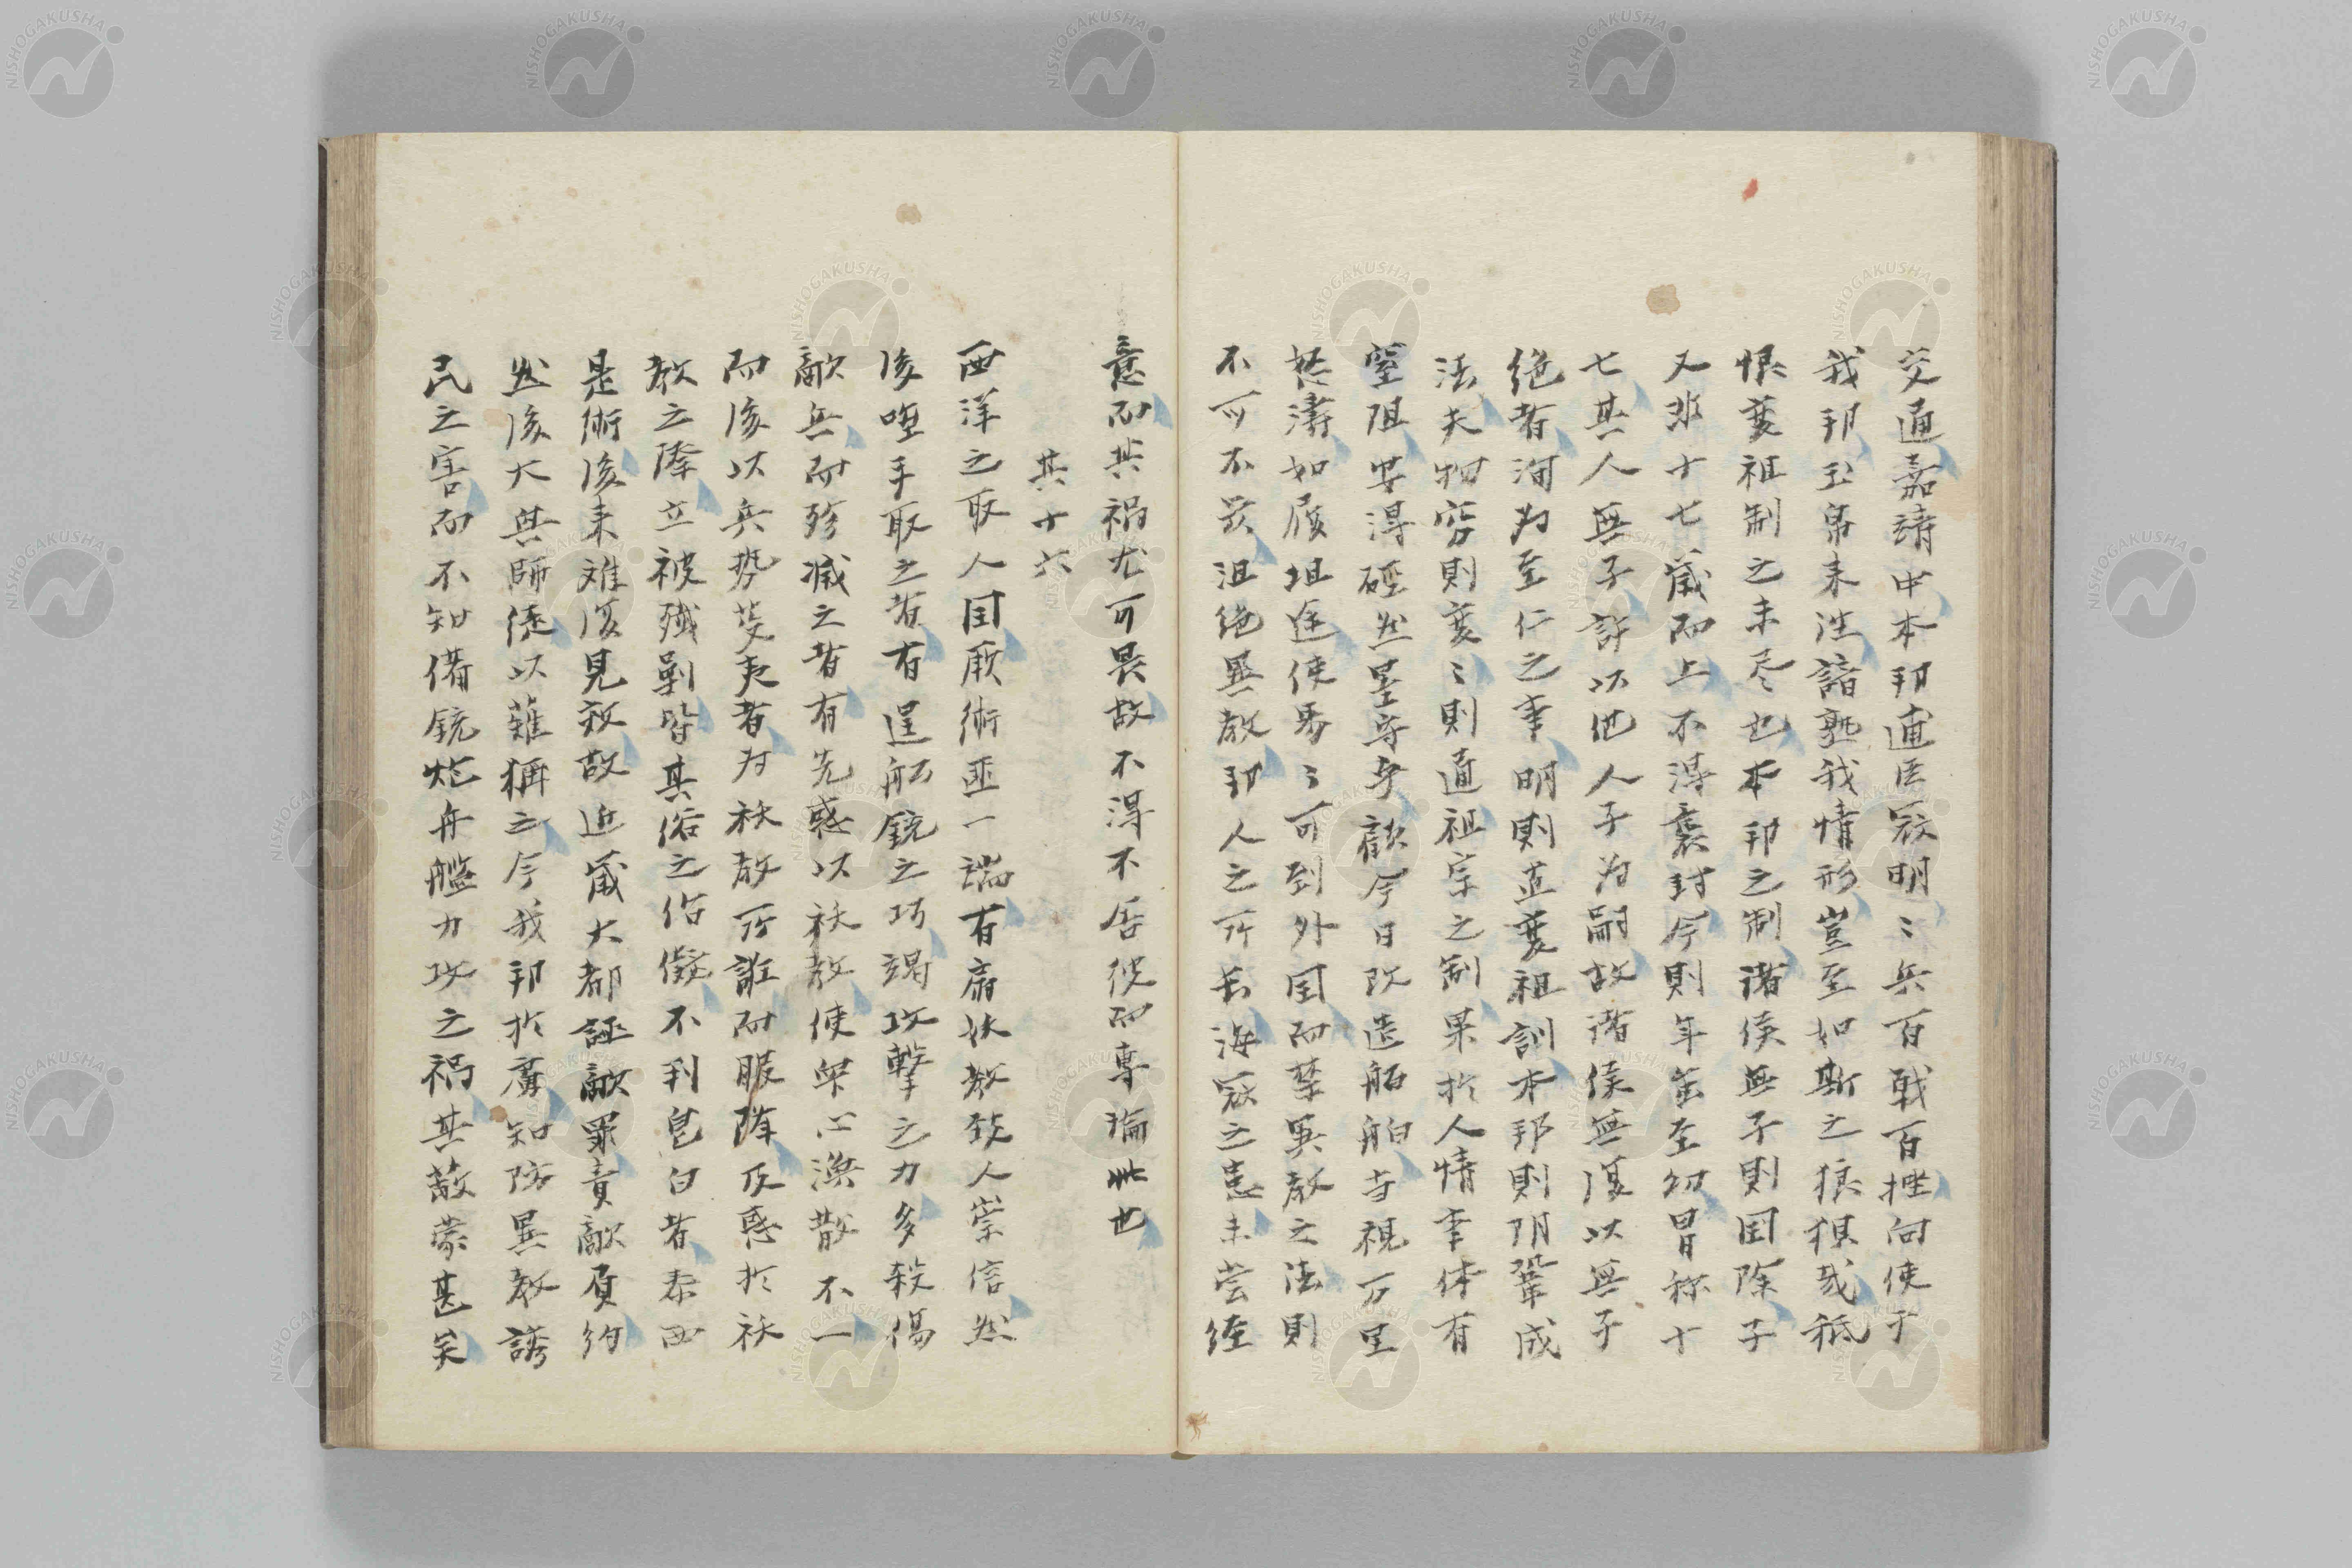 交通嘉靖中本邦逋臣寇明〻兵百戰百挫向使于
我邦玉帛来往諳熟我情形豈至如斯之狼狽哉秪
恨変祖制之未尽也本邦之制諸侯無子則国除子
又非十七歳而上不得襲封今則年虽至幼冒称十
七其人無子許以他人子为嗣故諸侯無復以無子
绝者洵为至仁之事明則直変祖訓本邦則阴鞏成
法夫物窮則変〻則通祖宗之制果於人情事体有
窒阻安得硜然墨守乎歡今日改造舶舶寺視万里
怒濤如履坦途使易〻可到外国而禁異教之法則
不可不严沮绝異教邦人之所長海寇之患未尝経
意而其禍尤可畏故不得不居彼而專論此也
其十六
西洋之取人国厥術匪一端有扇妖教致人崇信然
後唾手取之者有逞舶銃之巧竭攻擊之力多殺傷
敵兵而殄滅之者有先惑以祆教使衆心渙散不一
而後以兵势芟夷者为祆教所誑而服降反惑於祆
教之降立被殲剿皆其俗之俗儗不判皂白者泰西
是術後来难復見效故近歳大都誣敵罪責敵負約
然後大興師徒以薙獮之今我邦於虜知防異教誘
民之害而不知備銃炮舟艦力攻之禍其蔽蒙甚矣
NISHOGAKUSHA